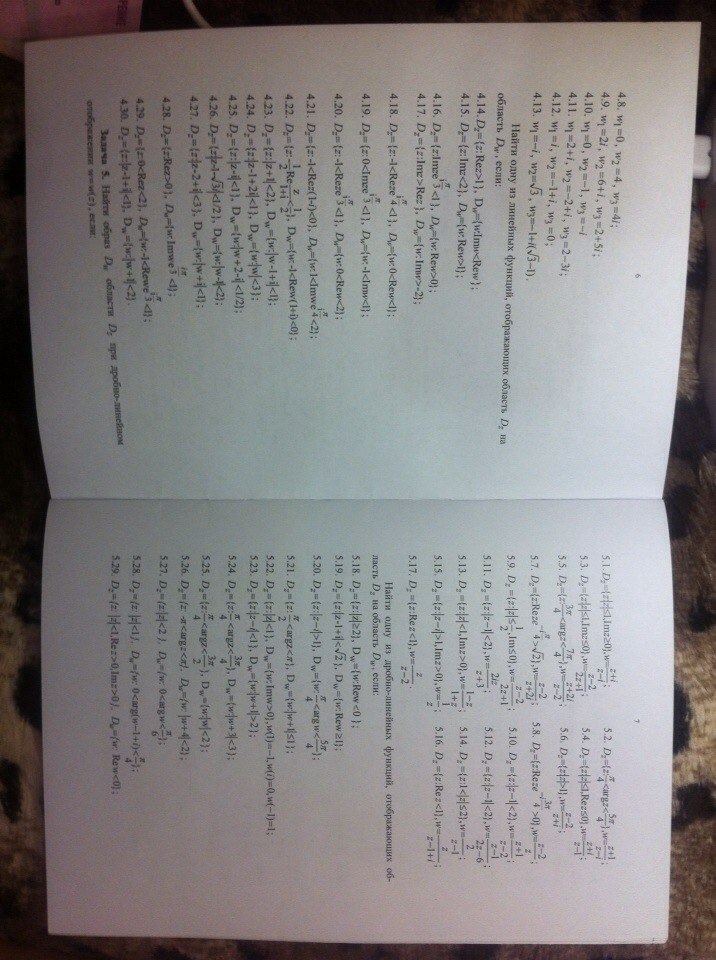 6
4.8. w₁=0, w₂=4, w₃=4i;
4.9. w₁=2i, w₂=6+i, w₃=2+5i;
4.10. w₁=0, w₂=−1, w₃=−i
4.11. w₁=2+i, w₂=−2+i, w₃=2−3i;
4.12. w₁=i, w₂=−1+i, w₃=0;
4.13. w₁=−i, w₂=√3, w₃=−1+i(√3−1).
Найти одну из линейных функций, отображающих область D_z на
область D_w, если:
4.14. D_z={z:Rez>1}, D_w={w:Imw<Rew};
4.15. D_z={z:Imz<2}, D_w={w:Rew>1};
4.16. D_z={z:Imze^{iπ/3}<1}, D_w={w:Rew>0};
4.17. D_z={z:Imz>Rez}, D_w={w:Imw>-2};
4.18. D_z={z:-1<Reze^{iπ/4}<1}, D_w={w:0<Rew<1};
4.19. D_z={z:0<Imze^{iπ/3}<1}, D_w={w:-1<Imw<1};
4.20. D_z={z:-1<Reze^{iπ/3}<1}, D_w={w:0<Rew<2};
4.21. D_z={z:-1<Rez(1+i)<0}, D_w={w:1<Imwe^{iπ/4}<2};
4.22. D_z={z:-1/2<Re z/(1+i)<1/2}, D_w={w:-1<Rew(1+i)<0};
4.23. D_z={z:|z+i|<2}, D_w={w:|w-1+i|<1};
4.24. D_z={z:|z-1+2i|<1}, D_w={w:|w|<3};
4.25. D_z={z:|z-i|<1}, D_w={w:|w+2-i|<1/2};
4.26. D_z={z:|z-1-√3i|<1/2}, D_w={w:|w-i|<2};
4.27. D_z={z:|z-2+i|<3}, D_w={w:|w+i|<1};
4.28. D_z={z:Rez>0}, D_w={w:Imwe^{iπ/3}<1};
4.29. D_z={z:0<Rez<2}, D_w={w:-1<Rewe^{iπ/3}<1};
4.30. D_z={z:|z-1+i|<1}, D_w={w:|w+i|<2}.
Задача 5. Найти образ D_w области D_z при дробно-линейном
отображении w=w(z), если:
7
5.1. D_z={z:|z|≤1,Imz≥0}, w=(z+i)/(z−i); 5.2. D_z={z:π/4<argz<5π/4}, w=(z+1)/(z−i);
5.3. D_z={z:|z|≤1,Imz≤0}, w=(z−2)/(2z+1); 5.4. D_z={z:|z|≤1,Rez≤0}, w=(z+i)/(z−1)
5.5. D_z={z:3π/4<argz<7π/4}, w=(z−2)/(z+2i); 5.6. D_z={z:|z|>1}, w=(z−2)/(z+i);
5.8.
5.9. 5.10. D_z={z:|z−1|<2}, w=(z+1)/(z−2)
5.11. D_z={z:|z−1|<2}, w=2iz/(z+3) 5.12. D_z={z:|z−1|<2}, w=(z−1)/(2z−6);
5.13. D_z={z:|z|<1,Imz>0}, w=(1−z)/(1+z); 5.14. D_z={z:1<|z|≤2}, w=2/(z−1)
5.15. D_z={z:|z−i|>1,Imz>0}, w=1/z; 5.16. D_z={z:Rez<1}, w=z/(z−1+i)
5.17. D_z={z:Rez<1}, w=z/(z−2)
Найти одну из дробно-линейных функций, отображающих об-
ласть D_z на область D_w, если:
5.18. D_z={z:|z|≥2}, D_w={w:Rew<0};
5.19. D_z={z:|z−1+i|<√2}, D_w={w:Rew≥1};
5.20. D_z={z:|z−i|>1}, D_w={w:π/4<argw<5π/4};
5.21. D_z={z:π/4<argz<π}, D_w={w:|w+1|≤1};
5.22. D_z={z:|z|<1}, D_w={w:Imw>0}, w(1)=−1, w(i)=0, w(−1)=1;
5.23. D_z={z:|z−i|<1}, D_w={w:|w+i|>2};
5.24. D_w={w:|w+3i|<3};
5.25. D_w={w:|w|<2};
5.26. D_z={z: -π<argz<π/4}, D_w={w: |w+4|<2};
5.27. D_z={z: |z|<2}, D_w={w: 0<argw<π/6};
5.28. D_z={z: |z|<1}, D_w={w: 0<arg(w−1+i)<π/4};
5.29. D_z={z: |z|<1,Rez>0,Imz>0}, D_w={w: Rew<0};